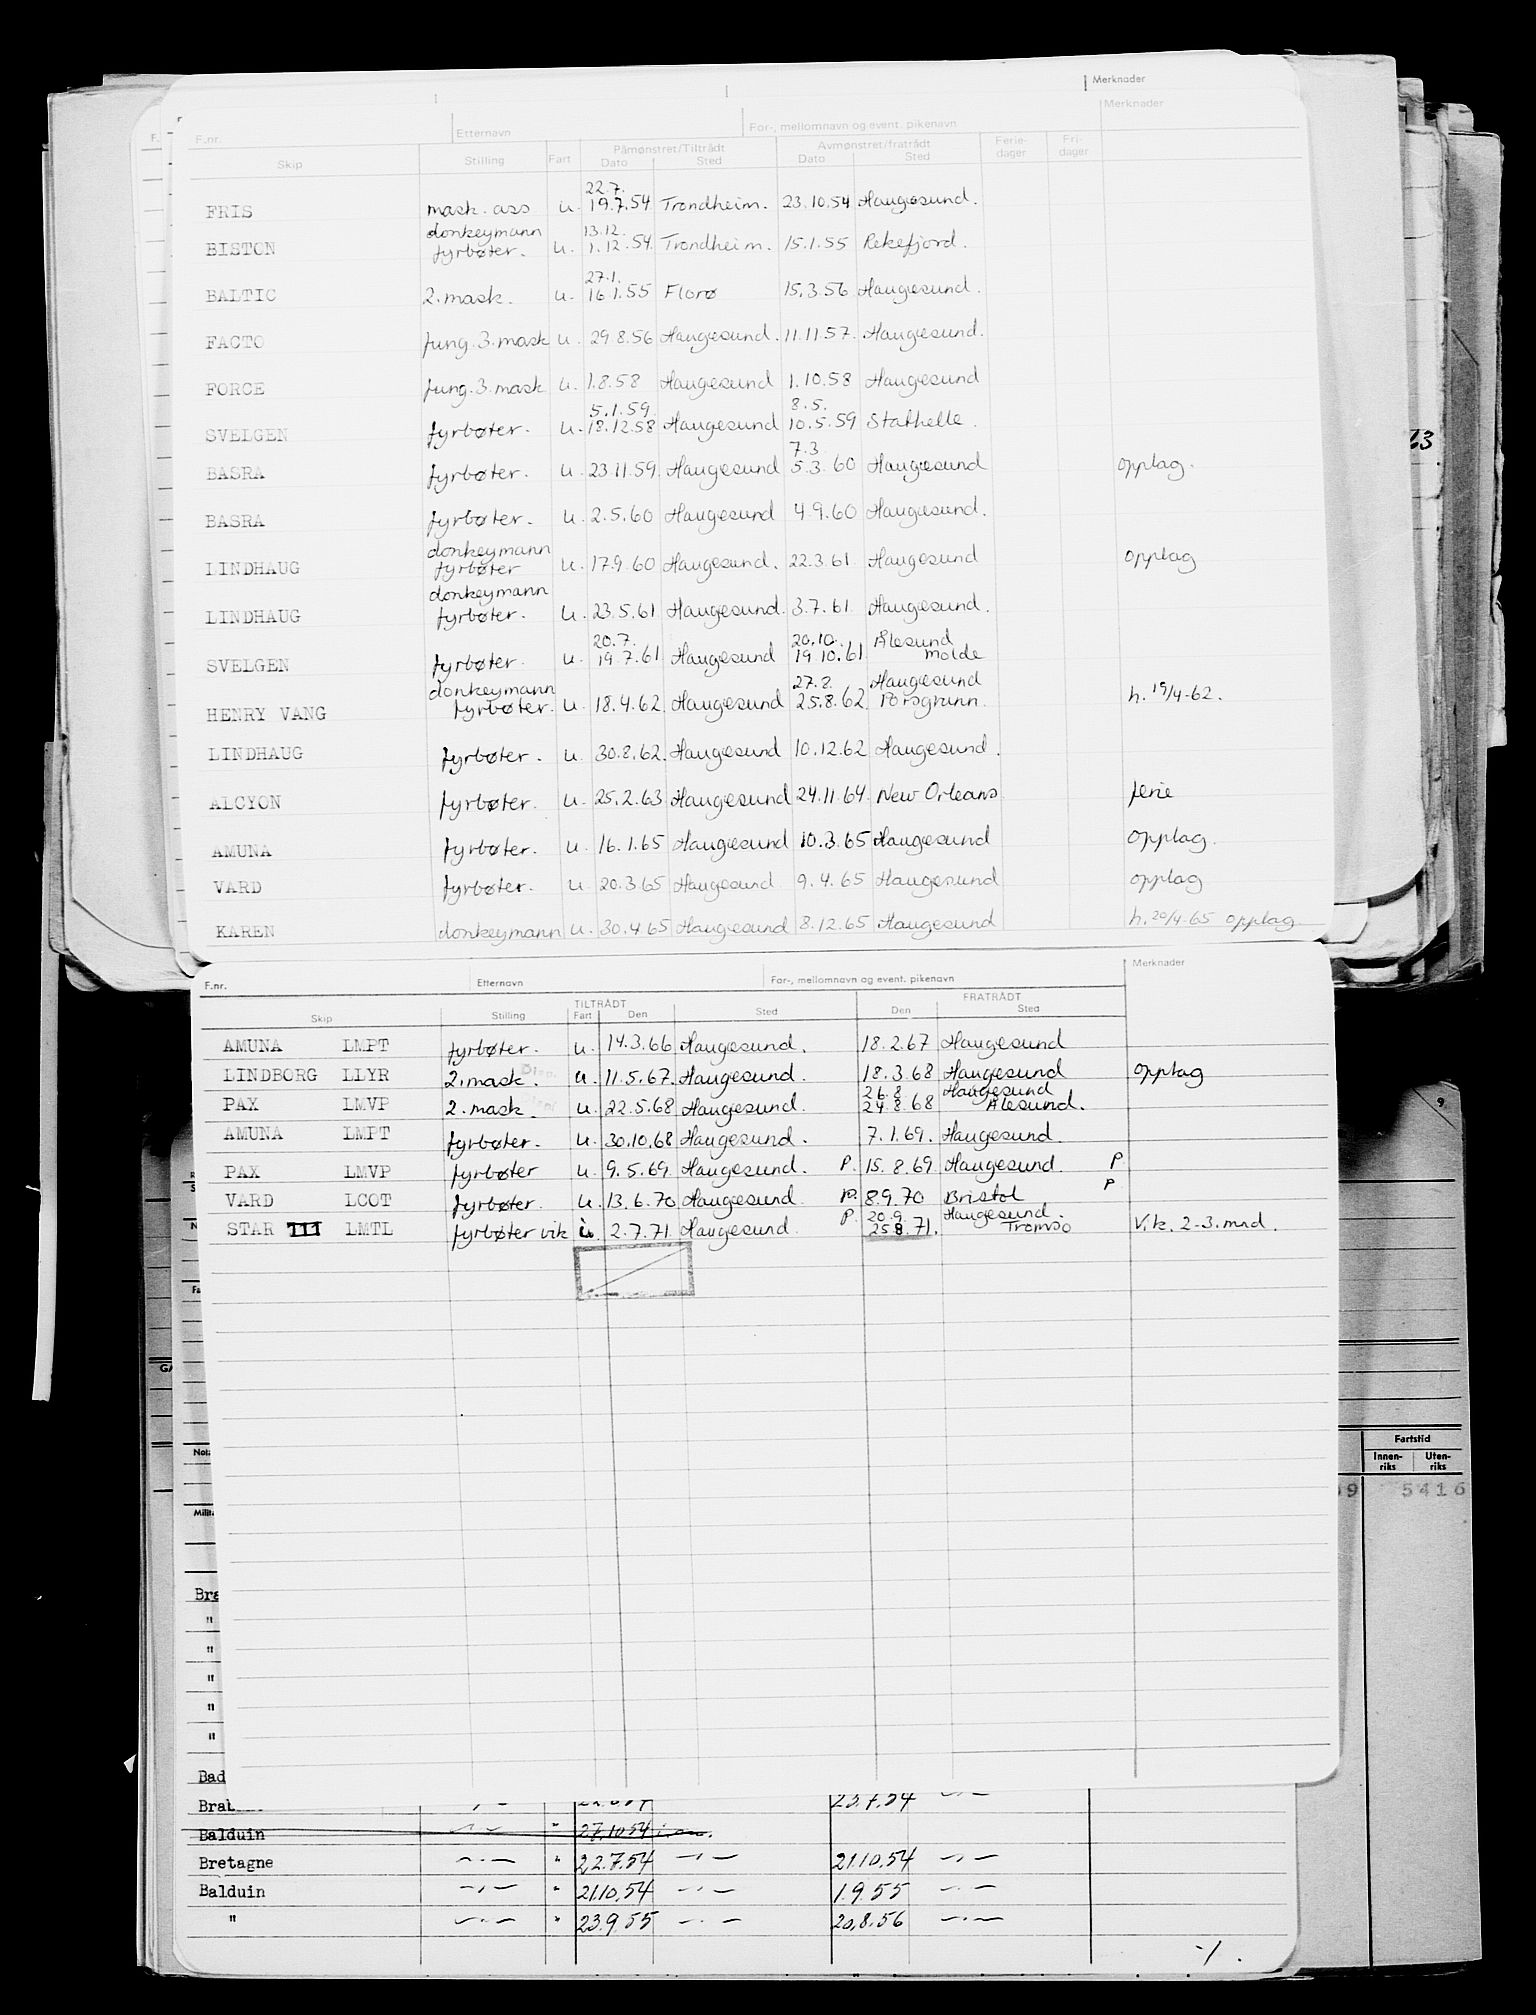 Merknader
F.nr. Etternavn For-, mellomnavn og event. pikenavn Merknader
Skip Stilling Fart Påmønstret/Tiltrådt Dato Sted Avmønstret/fratrådt Dato Sted Ferie-dager Fri-dager
22.7.
FRIS mask. ass u. 19.7.54 Trondheim. 23.10.54 Haugesund.
donkeymann 13.12.
BISTON fyrbøter. u. 1.12.54 Trondheim. 15.1.55 Rekefjord.
27.1.
BALTIC 2. mask. u. 16.1.55 Florø 15.3.56 Haugesund.
FACTO fung. 3. mask u. 29.8.56 Haugesund. 11.11.57. Haugesund.
FORCE fung. 3. mask u. 1.8.58 Haugesund 1.10.58 Haugesund
5.1.59. 8.5.
SVELGEN fyrbøter. u. 18.12.58 Haugesund 10.5.59 Stathelle.
7.3.
BASRA fyrbøter. u. 23.11.59 Haugesund 5.3.60 Haugesund opplag.
BASRA fyrbøter. u. 2.5.60 Haugesund 4.9.60 Haugesund.
donkeymann
LINDHAUG fyrbøter u. 17.9.60 Haugesund. 22.3.61. Haugesund opplag
donkeymann
LINDHAUG fyrbøter. u. 23.5.61 Haugesund. 3.7.61. Haugesund.
20.7. 20.10. Ålesund
SVELGEN fyrbøter. u. 19.7.61 Haugesund 19.10.61 Molde
donkeymann 27.8. Haugesund
HENRY VANG fyrbøter. u. 18.4.62 Haugesund 25.8.62 Porsgrunn. h. 19/4-62.
LINDHAUG fyrbøter. u. 30.8.62. Haugesund 10.12.62 Haugesund.
ALCYON fyrbøter. u. 25.2.63 Haugesund 24.11.64 New Orleans ferie
AMUNA fyrbøter. u. 16.1.65 Haugesund 10.3.65 Haugesund opplag.
VARD fyrbøter. u. 20.3.65 Haugesund 9.4.65 Haugesund opplag
KAREN donkeymann u. 30.4.65 Haugesund 8.12.65 Haugesund h. 20/4-65 opplag
63
F.nr. Etternavn For-, mellomnavn og event. pikenavn Merknader
TILTRÅDT FRATRÅDT
Skip Stilling Fart Den Sted Den Sted
AMUNA LMPT fyrbøter. u. 14.3.66 Haugesund. 18.2.67 Haugesund
LINDBORG LLYR 2. mask. Disp. u. 11.5.67. Haugesund. 18.3.68 Haugesund opplag
26.8. Haugesund
PAX LMVP 2. mask. u. 22.5.68 Haugesund. 24.8.68 Ålesund.
AMUNA LMPT fyrbøter. u. 30.10.68 Haugesund. 7.1.69. Haugesund.
PAX LMVP fyrbøter u. 9.5.69. Haugesund. P. 15.8.69 Haugesund. P
VARD LCOT fyrbøter. u. 13.6.70 Haugesund. P. 8.9.70 Bristol P
P. 20.9. Haugesund.
STAR III LMTL fyrbøter vik 2.7.71. Haugesund 25.8.71. Tromsø Vik. 2-3. mnd.
9
Fartstid
Innen-riks Uten-riks
9 5416
Bra
"
"
"
"
"
Bad
Brab 23.7.54 —"—
Balduin —"— " 27.10.54
Bretagne —"— " 22.7.54 —"— 21.10.54 —"—
Balduin —"— " 21.10.54 —"— 1.9.55 —"—
" —"— " 23.9.55 —"— 20.8.56 —"—
-/.